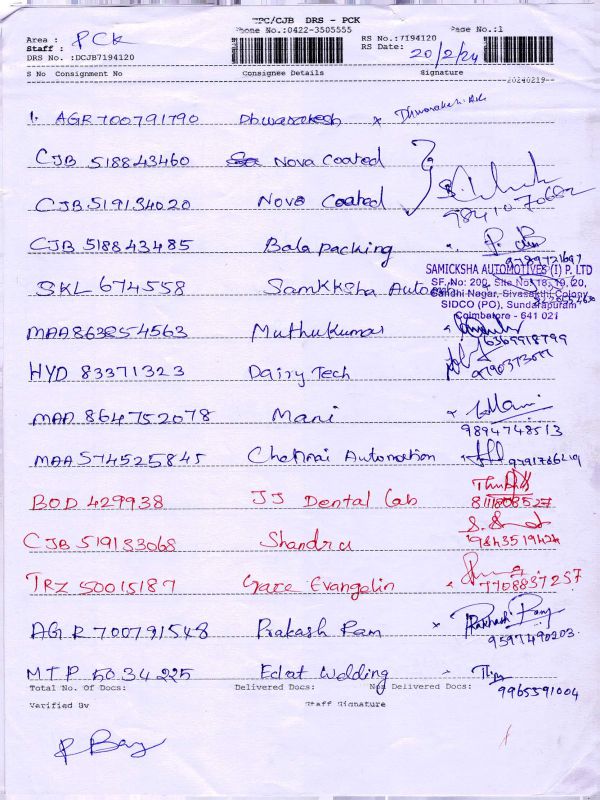 TPC/CJB DRS - PCK
Area : PCK
Phone No.:0422-3505555
RS No.:7194120
Page No.:1
Staff :
RS Date: 20/2/24
DRS No. :DCJB7194120
S No Consignment No Consignee Details Signature
20240219
1. AGR 700791790 Dhwarakesh
CJB 518843460 Nova Coated
CJB 519134020 Nova Coated
9841070682
CJB 518843485 Bala packing
9789721697
SAMICKSHA AUTOMOTIVES (I) P. LTD
SF. No: 200, Site No: 18, 19, 20,
SKL 674558 Samkksha Autom
Gandhi Nagar, Sivasakthi Colony,
SIDCO (PO), Sundarapuram
Coimbatore - 641 021
MAA 863854563 Muthukumar
HYD 83371323 Dairy Tech
MAA 864752078 Mani Mani
9894748513
MAA 574525845 Chennai Automation
BOD 429938 JJ Dental Lab
CJB 519133068 Shandru
TRZ 50015187 Grace Evangelin 7708837257
AGR 700791548 Prakash Ram Prakash Ram
9597490203
MTP 5034225 Eclat Wedding
9965591004
Total No. Of Docs: Delivered Docs: Non Delivered Docs:
Verified By Staff Signature